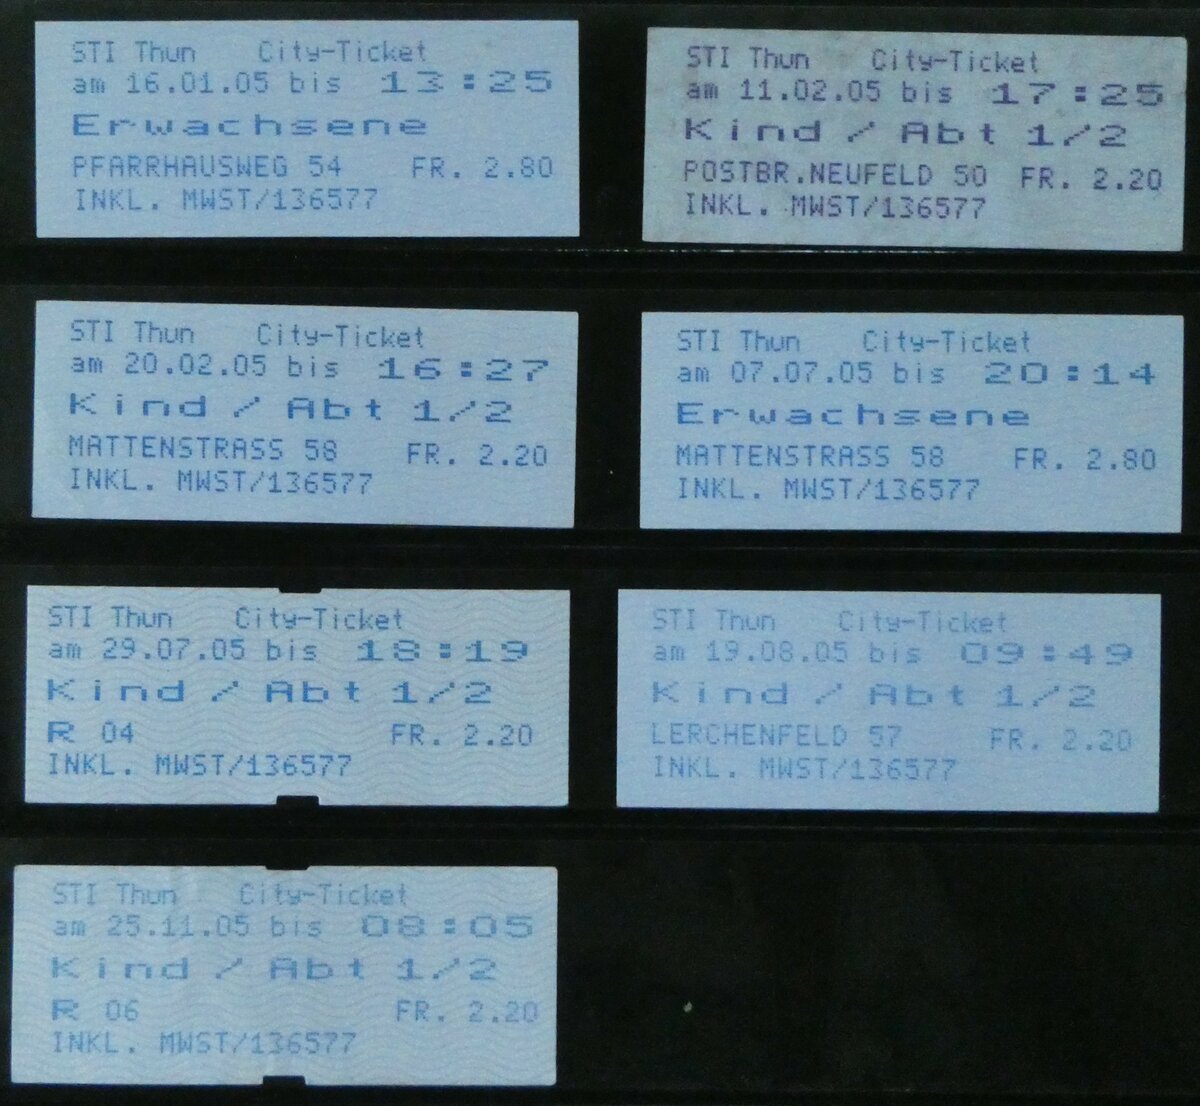 STI Thun City-Ticket
am 16.01.05 bis 13:25
Erwachsene
PFARRHAUSWEG 54 FR. 2.80
INKL. MWST/136577
STI Thun City-Ticket
am 11.02.05 bis 17:25
Kind / Abt 1/2
POSTBR.NEUFELD 50 FR. 2.20
INKL. MWST/136577
STI Thun City-Ticket
am 20.02.05 bis 16:27
Kind / Abt 1/2
MATTENSTRASS 58 FR. 2.20
INKL. MWST/136577
STI Thun City-Ticket
am 07.07.05 bis 20:14
Erwachsene
MATTENSTRASS 58 FR. 2.80
INKL. MWST/136577
STI Thun City-Ticket
am 29.07.05 bis 18:19
Kind / Abt 1/2
R 04 FR. 2.20
INKL. MWST/136577
STI Thun City-Ticket
am 19.08.05 bis 09:49
Kind / Abt 1/2
LERCHENFELD 57 FR. 2.20
INKL. MWST/136577
STI Thun City-Ticket
am 25.11.05 bis 08:05
Kind / Abt 1/2
R 06 FR. 2.20
INKL. MWST/136577